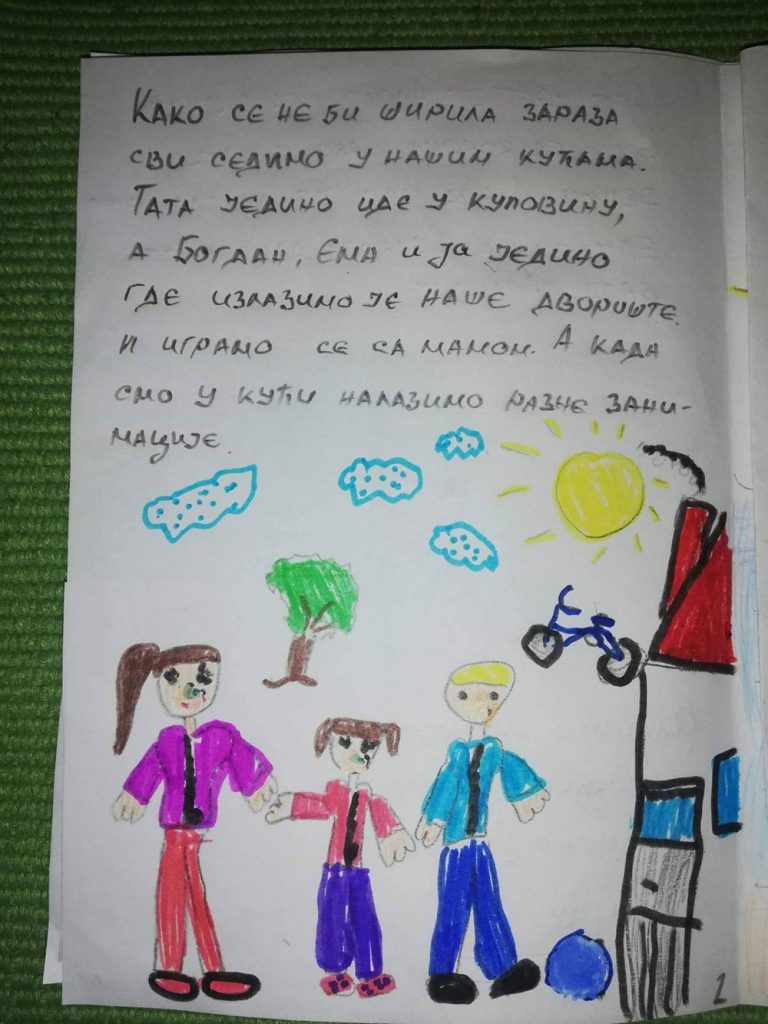 Како се не би ширила зараза
сви седимо у нашим кућама.
Тата једино иде у куповину,
а Богдан, Ема и ја једино
где излазимо је наше двориште.
и играмо се са мамом. А када
смо у кући налазимо разне зани-
мације.
2